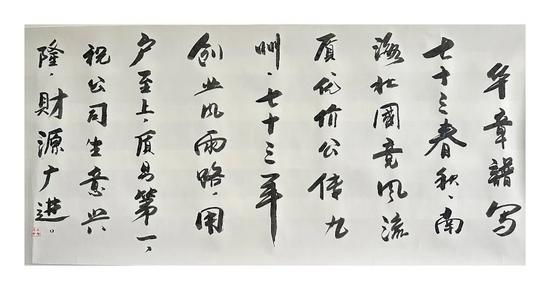 华章譜写
七十三春秋、南
海北國竞风流
质优价公传九
州、七十三年
创业风雨路、用
户至上、质量第一、
祝公司生意兴
隆、財源广進。